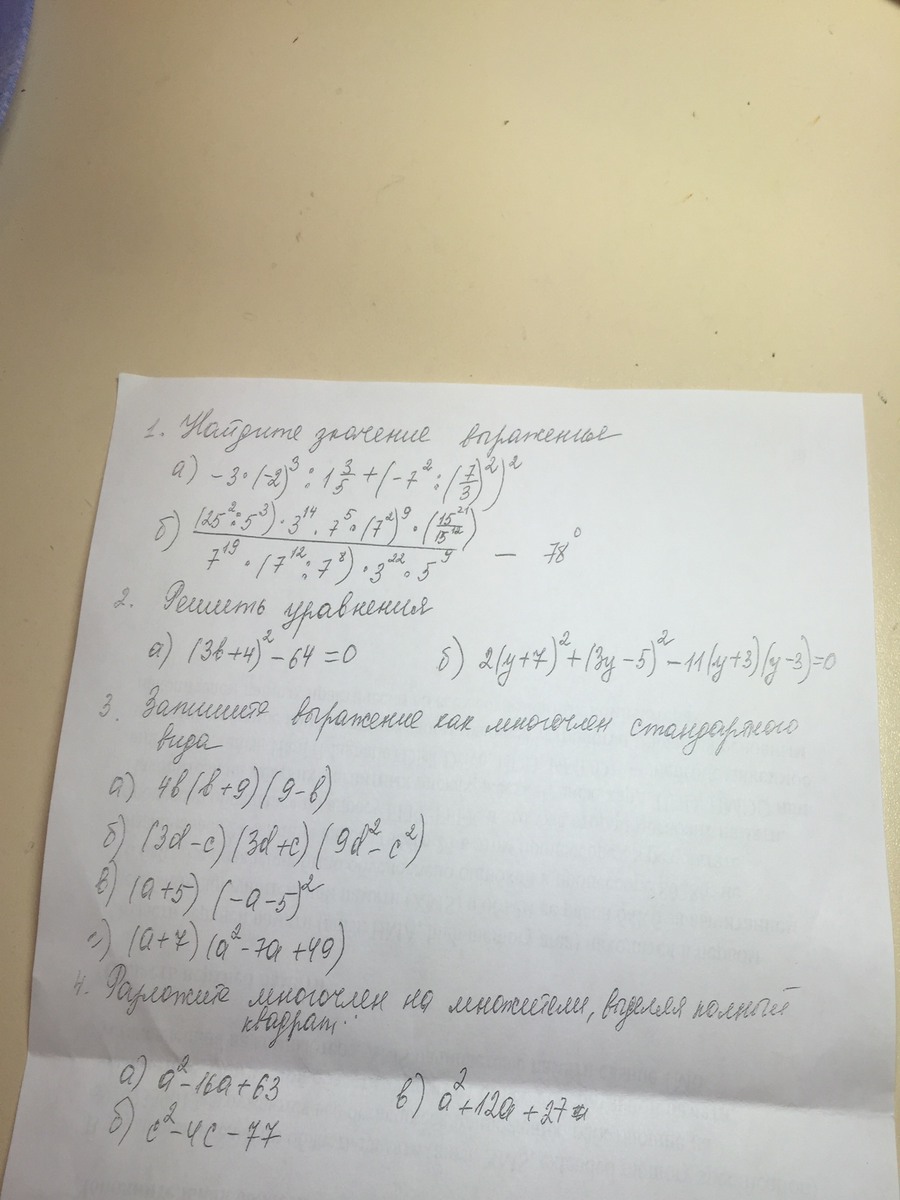 1. Найдите значение выраженья
а) -3·(-2)³ : 1 3/5 + (-7² : (7/3)²)²
б) ((25² : 5³)·3¹⁴·7⁵·(7²)⁹·(15²¹/15¹²)) / (7¹⁹·(7¹² : 7⁸)·3²²·5⁹) − 78⁰
2. Решить уравнения
а) (3в+4)² - 64 = 0 б) 2(y+7)² + (3y-5)² - 11(y+3)(y-3) = 0
3. Запишите выражение как многочлен стандартного
вида
а) 4в(в+9)(9-в)
б) (3d-c)(3d+c)(9d²-c²)
в) (а+5)(-а-5)²
г) (а+7)(а²-7а+49)
4. Разложите многочлен на множители, выделяя полный
квадрат:
а) а²-16а+63 в) а²+12а+27
б) с²-4с-77